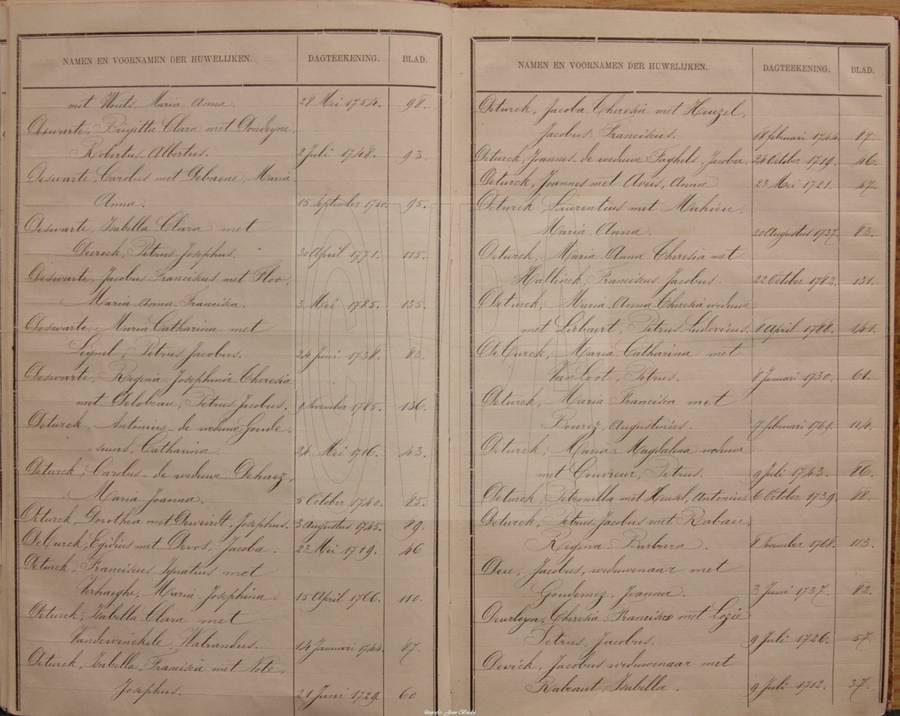 NAMEN EN VOORNAMEN DER HUWELIJKEN. DAGTEEKENING. BLAD.
met Wouts, Maria Anna. 28 Mei 1754. 98.
Deswarte, Brigitta Clara met Dondeyne,
Robertus Albertus. 2 Juli 1748. 93.
Deswarte, Carolus met Debaene, Maria
Anna. 15 September 1750. 95.
Deswarte, Isabella Clara met
Petrus Josephus. 30 April 1771. 115.
Deswarte, Jacobus Franciskus met Ploo,
Maria Anna Franciska. 3 Mei 1785. 135.
Deswarte, Maria Catharina met
Petrus Jacobus. 24 Juni 1738. 83.
Deswarte, Regina Josephina Theresia
met Delobeau, Petrus Jacobus. November 1785. 136.
Deturck, Antonius de weduwe
Catharina. 26 Mei 1716. 43.
Deturck, Carolus de weduwe
Maria Joanna. 5 October 1740. 85.
Deturck, Dorothea met Josephus. 3 Augustus 1745. 89.
Deturck, Egidius met Devos, Jacoba. 22 Mei 1719. 46
Deturck, Franciskus Ignatius met
Verhaeghe, Maria Josephina. 15 April 1766. 110.
Deturck, Isabella Clara met
Vandewinckele Walrandus. 14 Januari 1744. 87.
Deturck, Isabella Francisca met
Josephus. 21 Juni 1729. 60
NAMEN EN VOORNAMEN DER HUWELIJKEN. DAGTEEKENING. BLAD.
Deturck, Jacoba Theresia met Heuzel,
Jacobus Franciskus. 18 februari 1744. 87.
Deturck, Joannes de weduwe Jacoba. 24 October 1719. 46.
Deturck, Joannes met Anna 23 Mei 1721. 47.
Deturck Laurentius met Mahieu,
Maria Anna. 20 Augustus 1737. 83.
Deturck, Maria Anna Theresia met
Franciskus Jacobus. 22 October 1782. 131.
Deturck, Maria Anna Theresia weduwe
met Liebaert, Petrus Ludovicus. 1 April 1788. 141.
Deturck, Maria Catharina met
Vanloot, Petrus. 8 Januari 1730. 61.
Deturck, Maria Francisca met
Bourez, Augustinus. 7 februari 1764. 114.
Deturck, Maria Magdalena weduwe
met Couvreur, Petrus. 9 Juli 1743. 86.
Deturck, Petronilla met Heuzel, Antonius 6 October 1739. 88.
Deturck, Petrus Jacobus met
Regina Barbara. 8 November 1768. 113.
Jacobus, weduwenaar met
Joanna. 3 Juni 1737. 82.
Theresia Francisca met
Petrus Jacobus. 9 Juli 1726. 57.
Devick, Jacobus weduwenaar met
Isabella. 9 Juli 1712. 37.